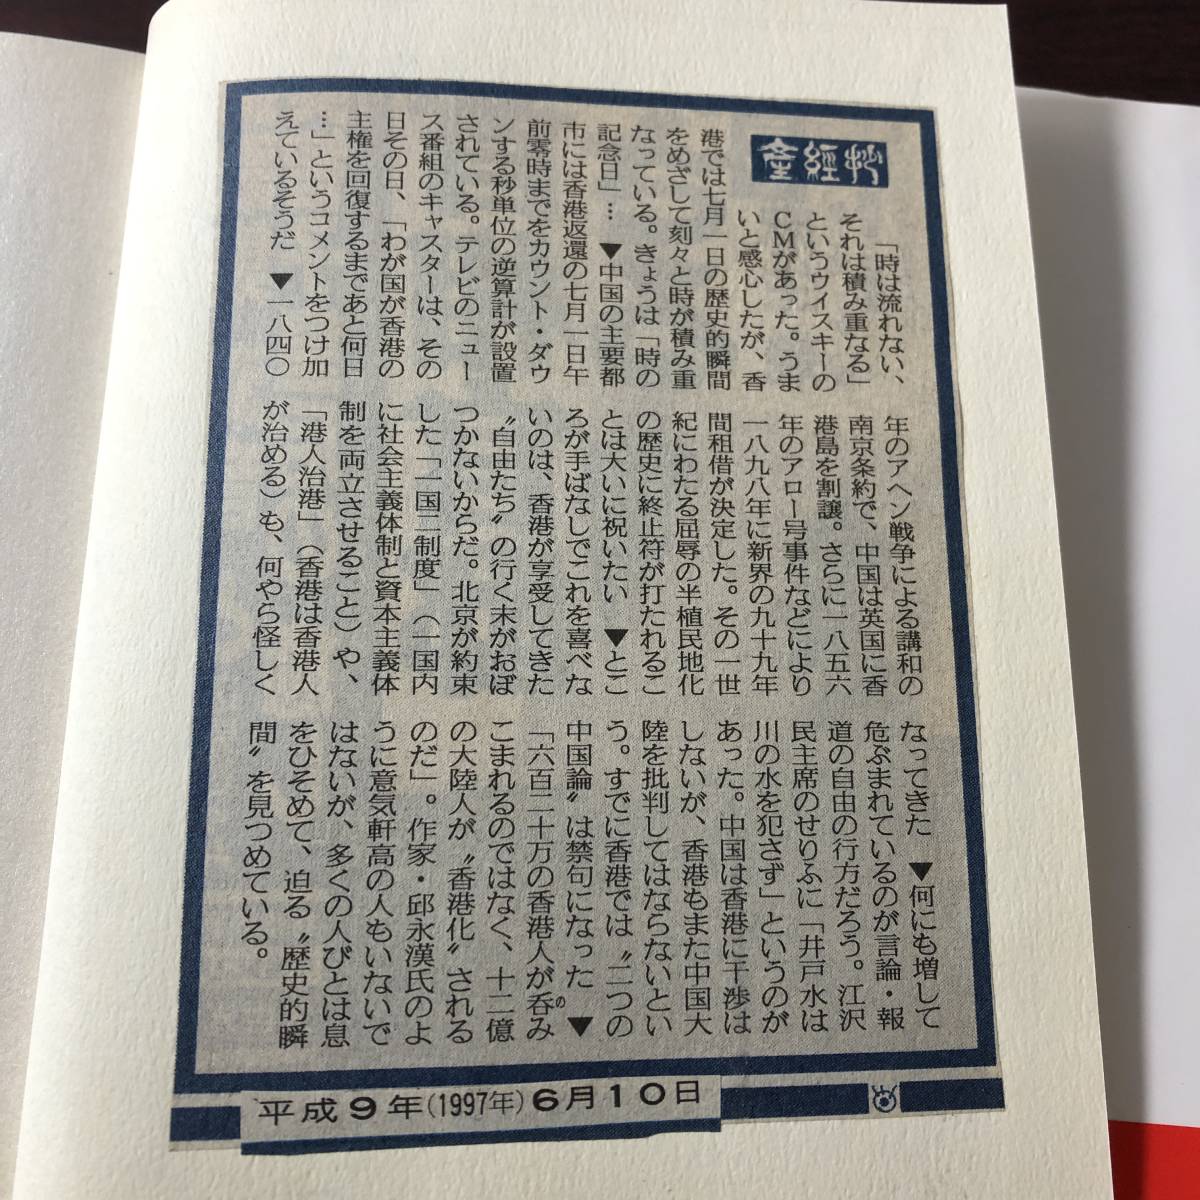 産經抄
「時は流れない、
それは積み重なる」
というウイスキーの
CMがあった。うま
いと感心したが、香
港では七月一日の歴史的瞬間
をめざして刻々と時が積み重
なっている。きょうは「時の
記念日」… ▼中国の主要都
市には香港返還の七月一日午
前零時までをカウント・ダウ
ンする秒単位の逆算計が設置
されている。テレビのニュー
ス番組のキャスターは、その
日その日、「わが国が香港の
主権を回復するまであと何日
…」というコメントをつけ加
えているそうだ ▼一八四〇
年のアヘン戦争による講和の
南京条約で、中国は英国に香
港島を割譲。さらに一八五六
年のアロー号事件などにより
一八九八年に新界の九十九年
間租借が決定した。その一世
紀にわたる屈辱の半植民地化
の歴史に終止符が打たれるこ
とは大いに祝いたい ▼とこ
ろが手ばなしでこれを喜べな
いのは、香港が享受してきた
〝自由たち〟の行く末がおぼ
つかないからだ。北京が約束
した「一国二制度」（一国内
に社会主義体制と資本主義体
制を両立させること）や、
「港人治港」（香港は香港人
が治める）も、何やら怪しく
なってきた ▼何にも増して
危ぶまれているのが言論・報
道の自由の行方だろう。江沢
民主席のせりふに「井戸水は
川の水を犯さず」というのが
あった。中国は香港に干渉は
しないが、香港もまた中国大
陸を批判してはならないとい
う。すでに香港では〝二つの
中国論〟は禁句になった ▼
「六百二十万の香港人が呑み
の
こまれるのではなく、十二億
の大陸人が〝香港化〟される
のだ」。作家・邱永漢氏のよ
うに意気軒高の人もいないで
はないが、多くの人びとは息
をひそめて、迫る〝歴史的瞬
間〟を見つめている。
平成９年(1997年)６月１０日